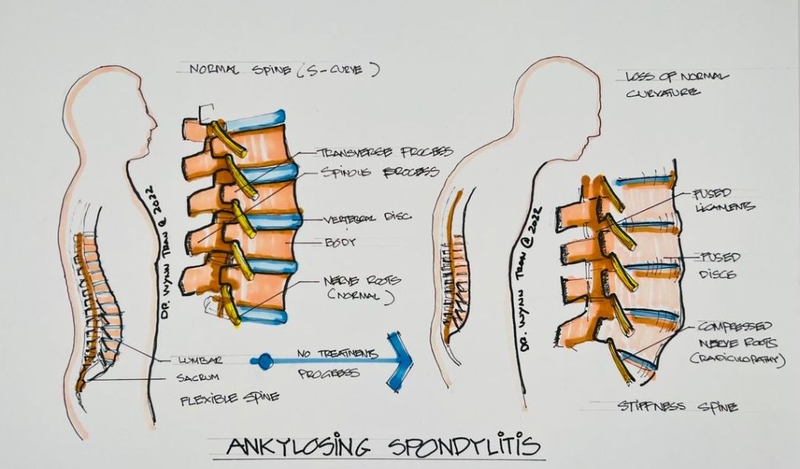 NORMAL SPINE (S-CURVE)
TRANSVERSE PROCESS
SPINOUS PROCESS
VERTEBRAL DISC
BODY
NERVE ROOTS
(NORMAL)
DR. WYNN TRAN @ 2022
LUMBAR
SACRUM
FLEXIBLE SPINE
NO TREATMENTS
PROGRESS
LOSS OF NORMAL
CURVATURE
FUSED
LIGAMENTS
FUSED
DISCS
COMPRESSED
NERVE ROOTS
(RADICULOPATHY)
DR. WYNN TRAN @ 2022
STIFFNESS SPINE
ANKYLOSING SPONDYLITIS